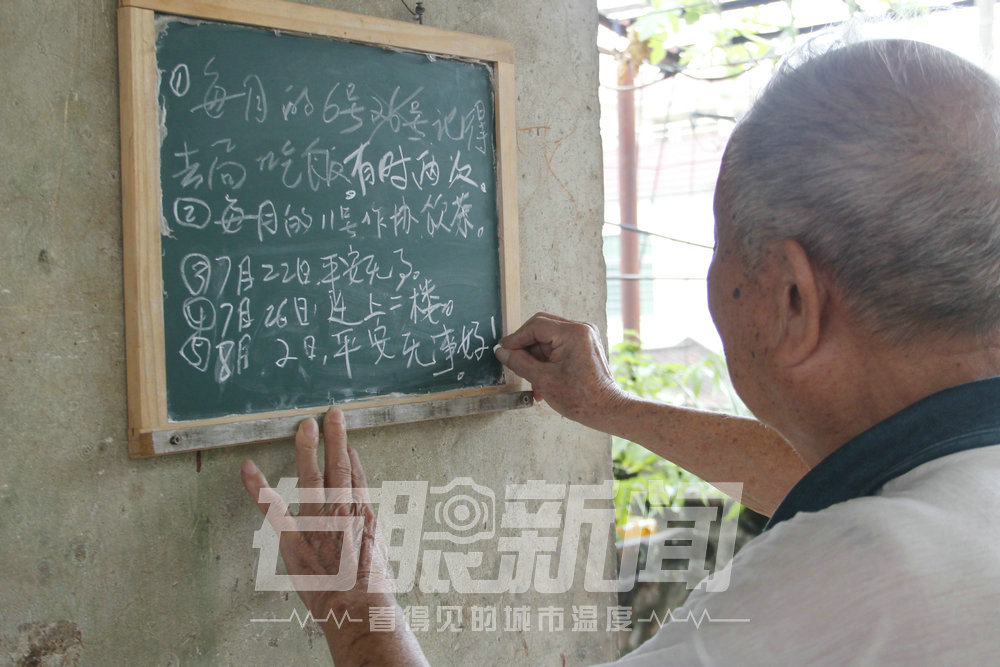 ① 每月的6号26号记得
去局吃饭。有时两次。
② 每月的11号作协饮茶。
③ 7月22日.平安无了.
④ 7月26日.送上二楼。
⑤ 8月2日,平安无事好!
石眼新闻
看得见的城市温度